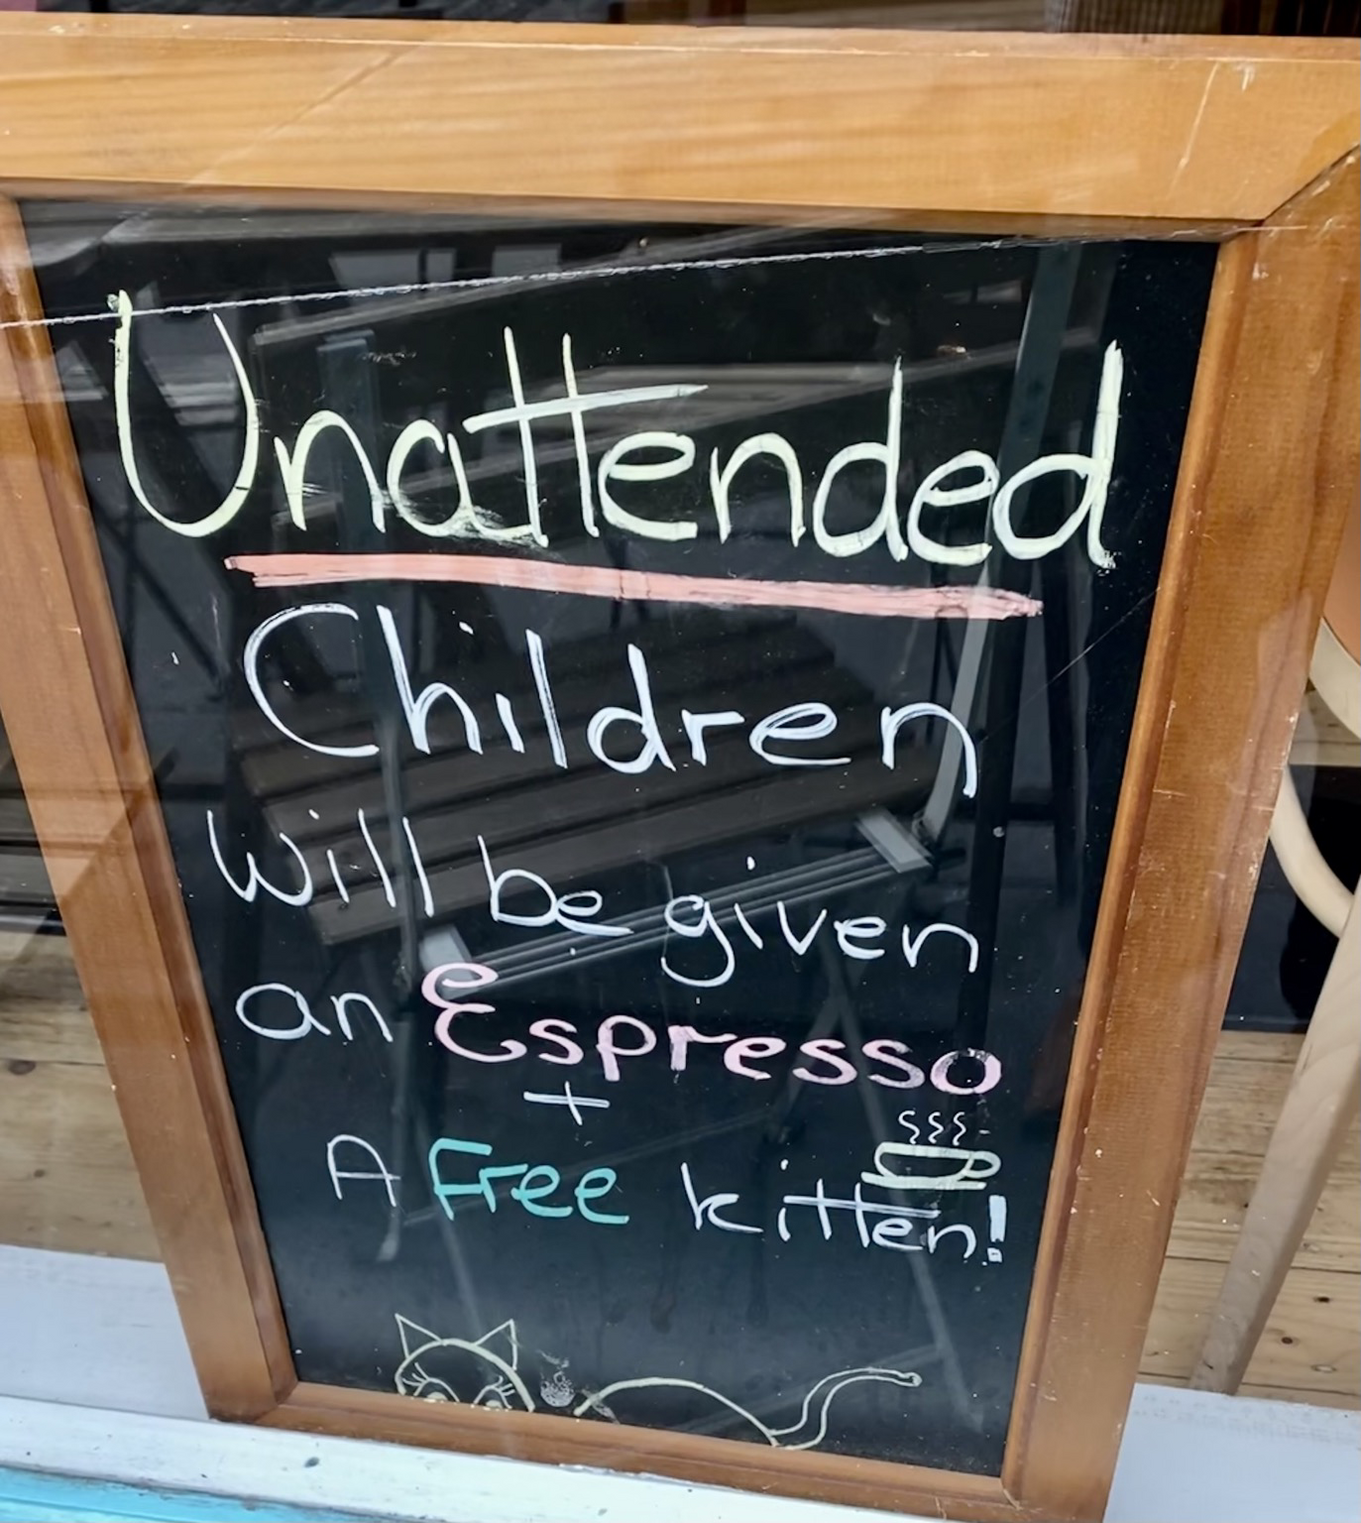 Unattended
Children
will be given
an Espresso
+
A Free kitten!